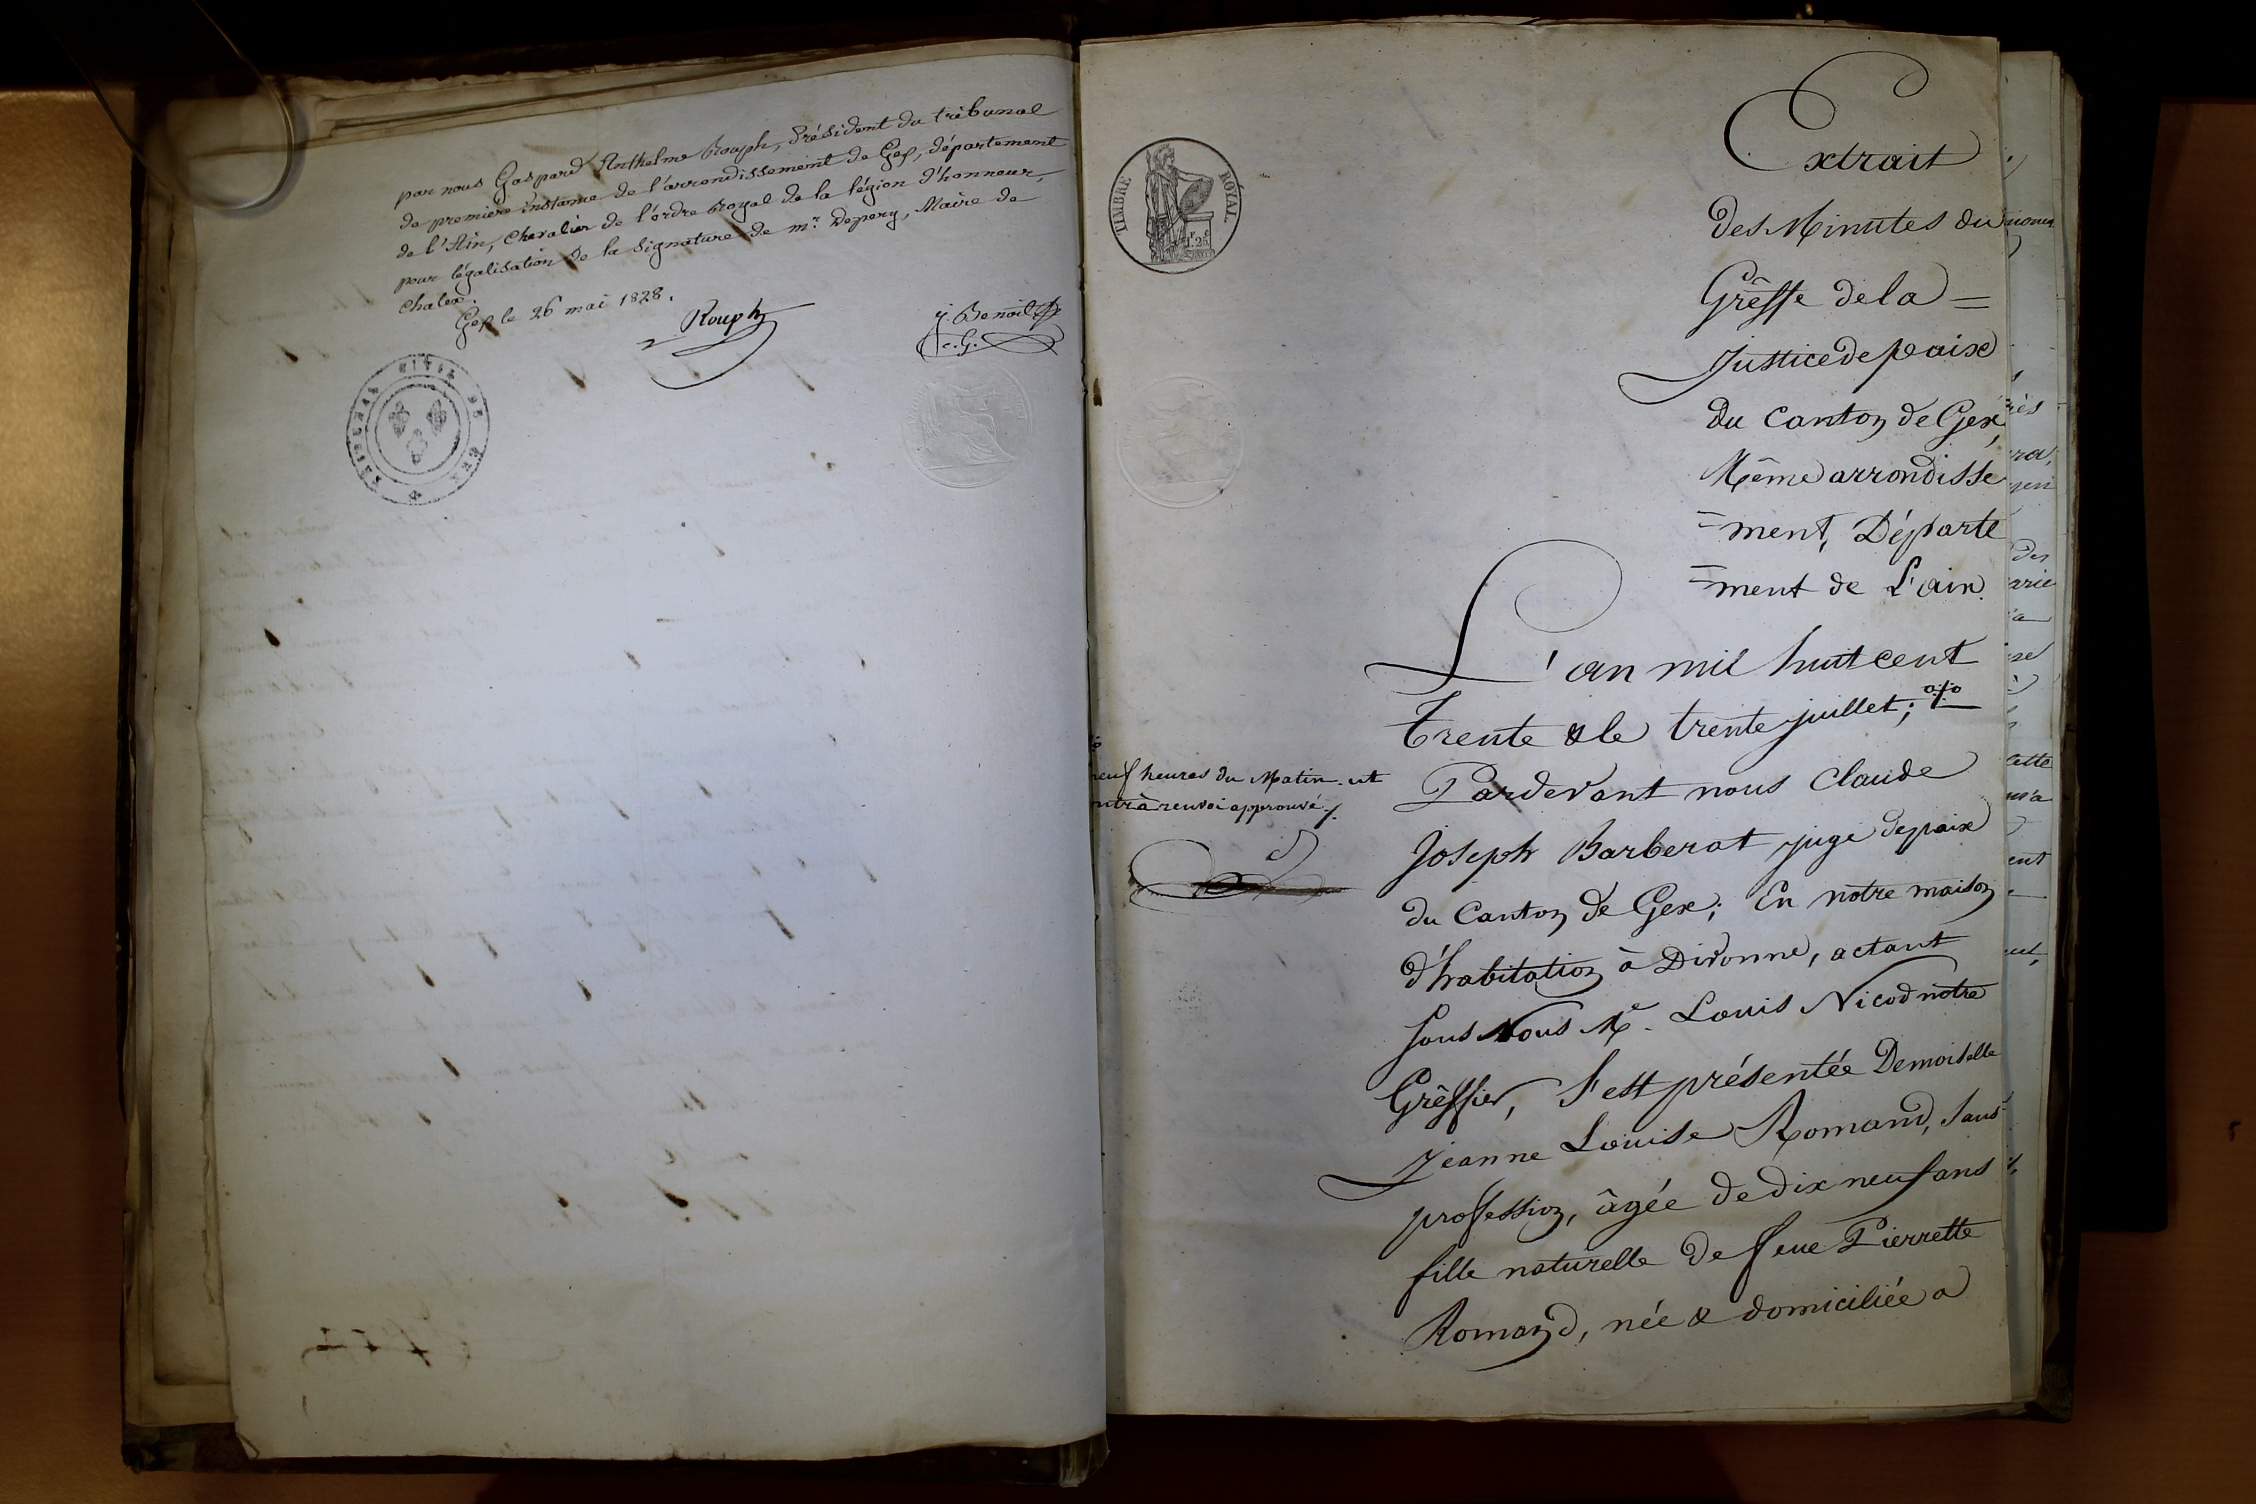 par nous Gaspard Anthelme Rouph, Président du tribunal
de premiere instance de l'arrondissement de Gex, département
de l'Ain, Chevalier de l'ordre Royal de la légion d'honneur,
pour légalisation de la signature de mr. Depery, Maire de
Chalex.
Gex le 26 mai 1828.
Rouph
j. Benoit
c. G.
TRIBUNAL CIVIL DE GEX
TIMBRE ROYAL
1.25
Extrait
des Minutes du
Grêffe de la =
Justice de paix
du Canton de Gex,
Même arrondisse
=ment, Départe
=ment de L'ain.
L'an mil huit cent
Trente & le trente juillet;
Pardevant nous Claude
Joseph Barberat juge de paix
du Canton de Gex; En notre maison
d'habitation à Divonne, actant
sous Nous Me. Louis Nicod notre
Grêffier, s'est présentée Demoiselle
Jeanne Louise Romand, sans
proffession, âgée de dix neuf ans
fille naturelle de feue Pierrette
Romand, née & domiciliée a
neuf heures du Matin
renvoi approuvé ./.